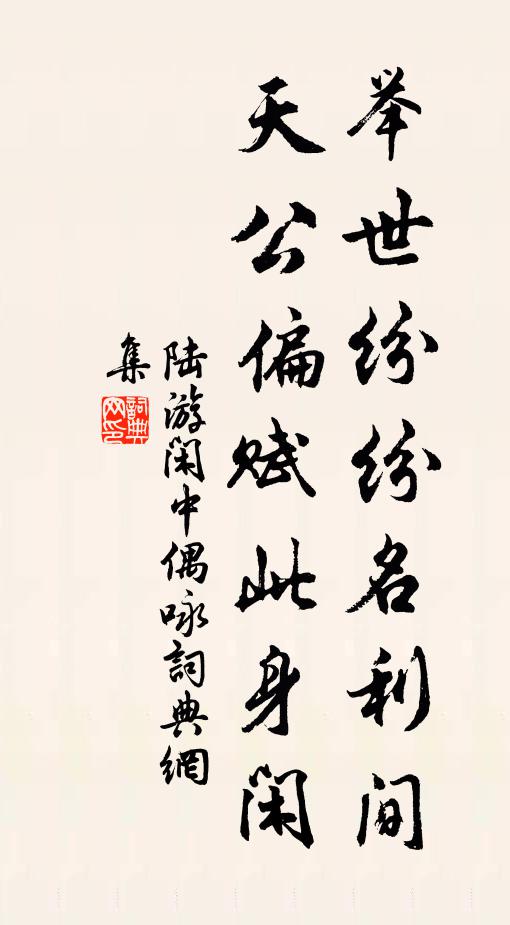 举世纷纷名利间
天公偏赋此身闲
陆游闲中偶咏詞典網
集
詞典
网印